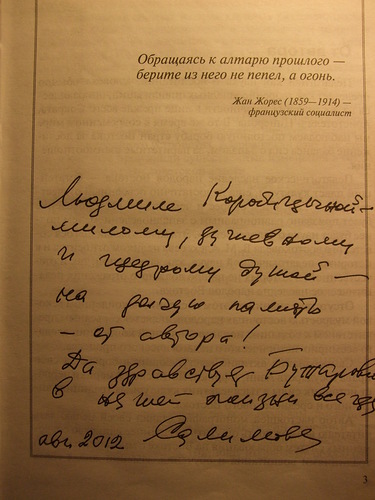 Обращаясь к алтарю прошлого —
берите из него не пепел, а огонь.
Жан Жорес (1859—1914) —
французский социалист
Людмиле
милому, душевному
и щедрому душой —
на долгую память
— от автора!
Да здравствует
в нашей жизни всегда
авг 2012 Салимова
3